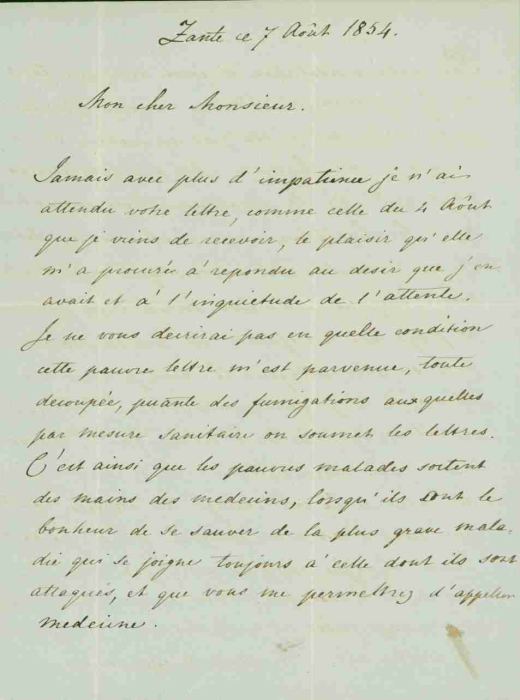 Zante ce 7 Août 1854.
Mon cher Monsieur.
Jamais avec plus d'impatience je n'ai
attendu votre lettre, comme celle du 4 Août
que je viens de recevoir, le plaisir qu'elle
m'a procurée à repondu au desir que j'en
avait et à l'inquietude de l'attente.
Je ne vous decrirai pas en quelle condition
cette pauvre lettre m'est parvenue, toute
decoupée, puante des fumigations aux quelles
par mesure sanitaire on soumet les lettres.
C'est ainsi que les pauvres malades sortent
des mains des medecins, lorsqu'ils ont le
bonheur de se sauver de la plus grave mala-
die qui se joigne toujours à celle dont ils sont
attaqués, et que vous me permettrez d'appeller
medecine.